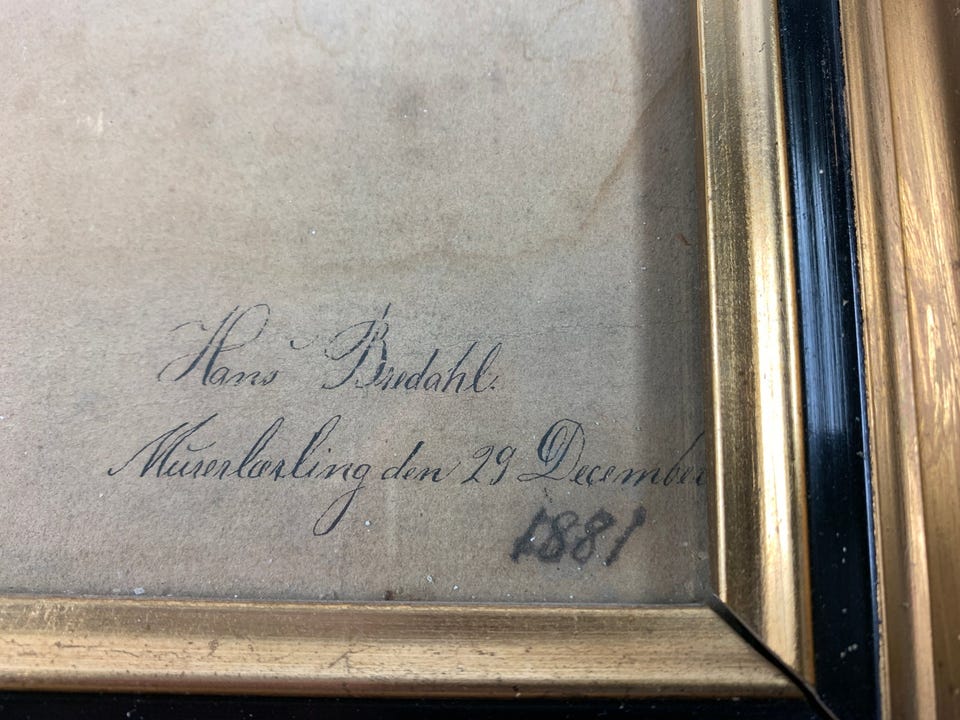 Hans Bredahl.
Murerlærling den 29 December
1881